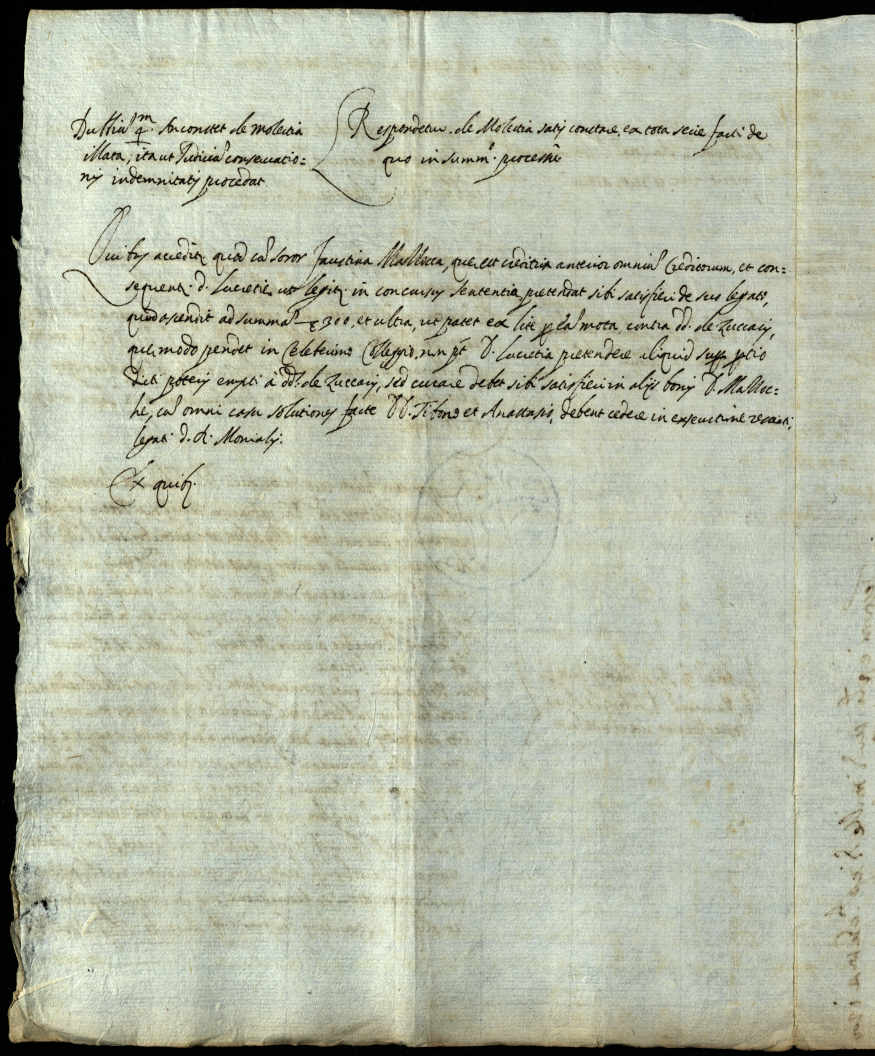 Dubbiũ 4.m An constet de molestia
illata, ita ut Judiciũ conservatio=
nis indemnitatis procedat
Respondetur. de Molestia satis constare, ex tota serie facti de
quo in summ.o processũ
Quibus accedit, quod cũ soror Faustina Mallocca, que est creditrix anterior omniũ Creditorum, et con=
sequent. d. Lucretie, ut legit. in concursus sententia, pretendat sibi satisfieri de suo legato,
quod ascendit ad summã 300, et ultra, ut patet ex lite p eã mota, contra dd. de Zuccarijs,
que modo pendet in Celeberimo Collegio, non pt D. Lucretia pretendere aliquid sup ptio
dicti poderis empti à dd. de Zuccarijs, sed curare debet sibi satisfieri in alijs bonis D. Malloc=
he, cũ omni casu solutiones facte DD. Tibono et Anastasio, debent cedere in
legati d. R. Monialis.
Ex quib.